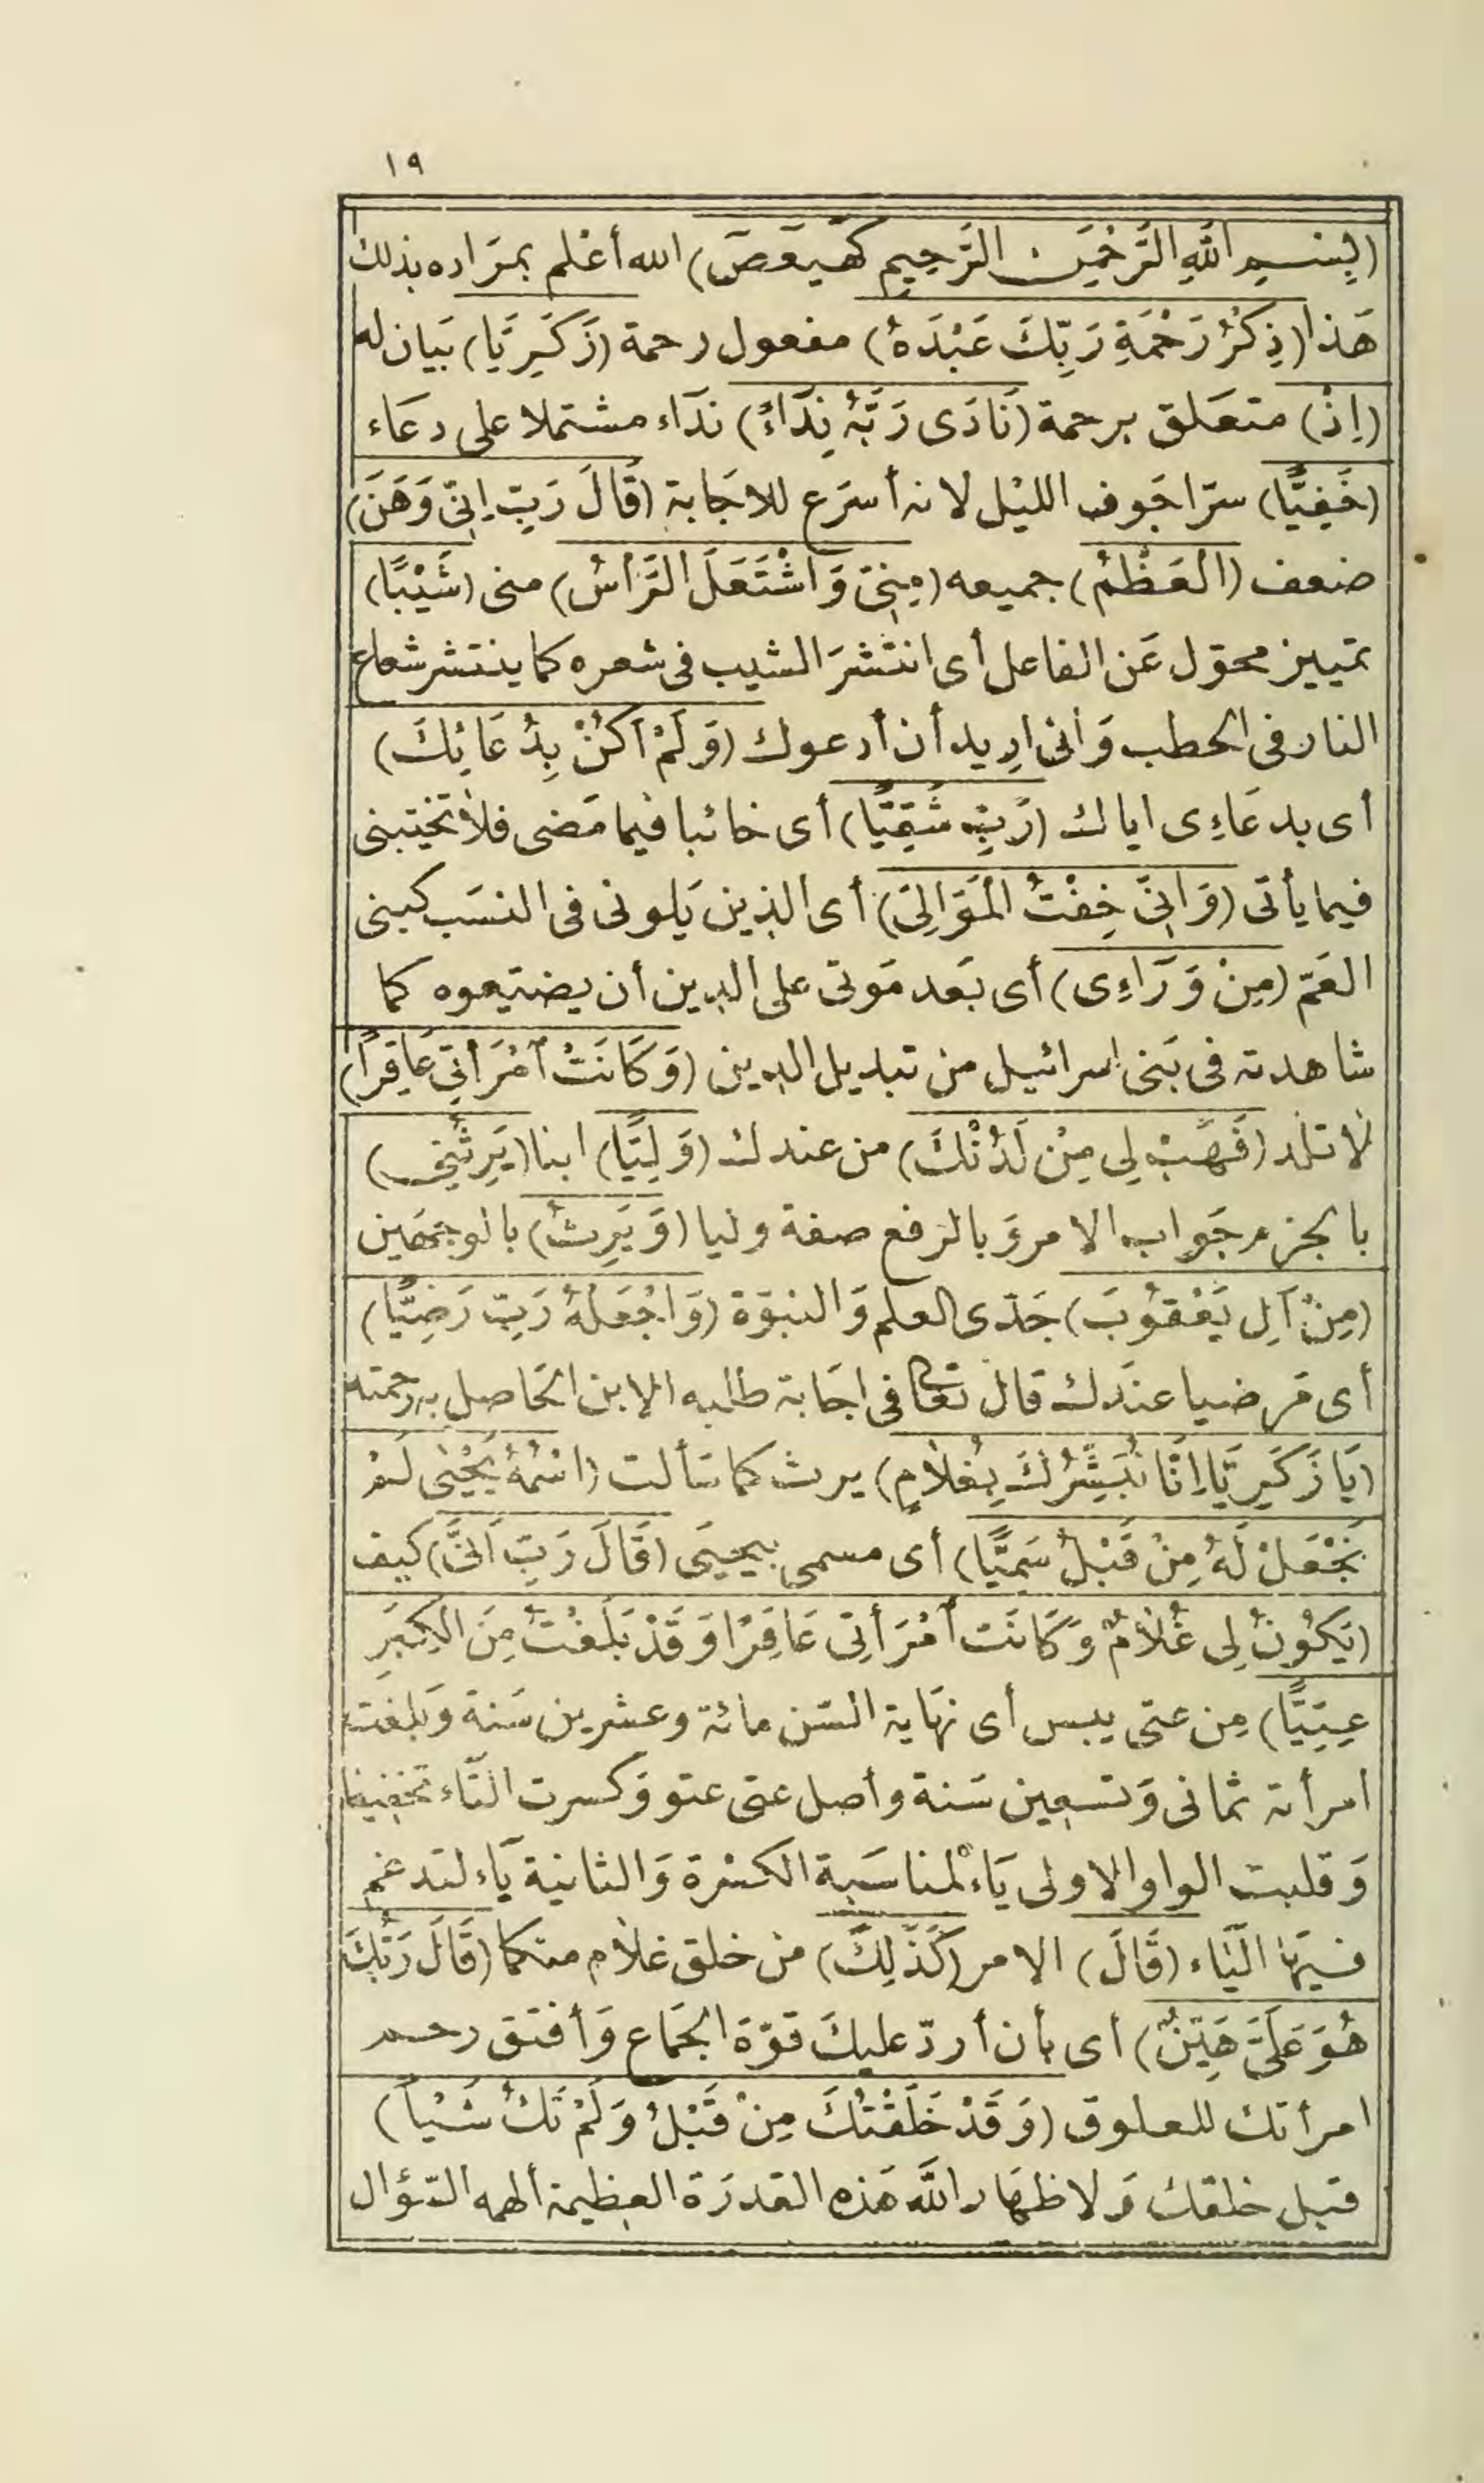 ١٩
(بِسْمِ اللَّهِ الرَّحْمَنِ الرَّحِيمِ كٓهٰيٰعٓصٓ) الله أعْلم بمرَاده بذلك
هَذا (ذِكْرُ رَحْمَةِ رَبِّكَ عَبْدَهُ) مفعول رحمة (زَكَرِيَّا) بيَان له
(اِذْ) متعَلق برحمة (نَادَى رَبَّهُ نِدَاءً) ندَاء مشتملا على دعَاء
(خَفِيًّا) سرّا جَوف الليْل لانه أسرَع للاجَابة (قَالَ رَبِّ اِنِّى وَهَنَ)
ضعف (الْعَظْمُ) جميعه (مِنِّى وَاشْتَعَلَ الرَّأسُ) منى (شَيْبًا)
تمييز محوّل عَن الفاعل أى انتشرَ الشيب فى شعره كما ينتشر شعاع
النار فى الحطب وَانى اريد أن أدعوك (وَلَمْ اَكُنْ بِدُعَائِكَ)
أى بدعَاءِى اياك (رَبِّ شَقِيًّا) أى خائبا فيما مَضى فلا تخيّبنى
فيما يأتى (وَاِنِّى خِفْتُ الْمَوَالِىَ) أى الذين يَلونى فى النسَب كبنى
العَمّ (مِنْ وَرَاءِى) أى بَعد مَوتى على الدين أن يضيّعوه كما
شاهدته فى بَنى اسرائيل من تبديل الدين (وَكَانَتْ اُمْرَأتِى عَاقِرًا)
لا تلد (فَهَبْ لِى مِنْ لَدُنْكَ) من عندك (وَلِيًّا) ابنا (يَرِثُنِى)
بالجزم جَواب الامر وَبالرفع صفة وليا (وَيَرِثُ) بالوجهَين
(مِنْ اَلِ يَعْقُوبَ) جَدّى العلم وَالنبوّة (وَاجْعَلْهُ رَبِّ رَضِيًّا)
أى مَرضيا عندَك قال تعالى فى اجَابة طلبه الابن الحَاصل به رحمته
(يَا زَكَرِيَّا اِنَّا نُبَشِّرُكَ بِغُلَامٍ) يرث كما سَألت (اسْمُهُ يَحْيٰى لَمْ
نَجْعَلْ لَهُ مِنْ قَبْلُ سَمِيًّا) أى مسمى بيحيَى (قَالَ رَبِّ اَنَّى) كيف
(يَكُونُ لِى غُلَامٌ وَكَانَت اُمْرَأتِى عَاقِرًا وَقَدْ بَلَغْتُ مِنَ الْكِبَرِ
عِتِيًّا) مِن عتى يبس أى نهَاية السّن مائة وعشرين سَنة وَبلغت
امرأته ثمانى وَتسعين سَنة وأصل عتى عتو وَكسرت التّاء تخفيفا
وَقلبت الواو الاولى يَاء لمناسَبة الكسْرة وَالثانية يَاء لتدغم
فيهَا اليَاء (قَالَ) الامر (كَذَلِكَ) من خلق غلام منكما (قَالَ رَبُّكَ
هُوَ عَلَىَّ هَيِّنٌ) أى بأن أردّ عليكَ قوّة الجمَاع وَأفتق رحم
امرأتك للعلوق (وَقَدْ خَلَقْتُكَ مِنْ قَبْلُ وَلَمْ تَكُ شَيْأً)
قبل خلقك وَلاظهَار اللَّه هَذه القدرَة العظيمة ألهمه السّؤال